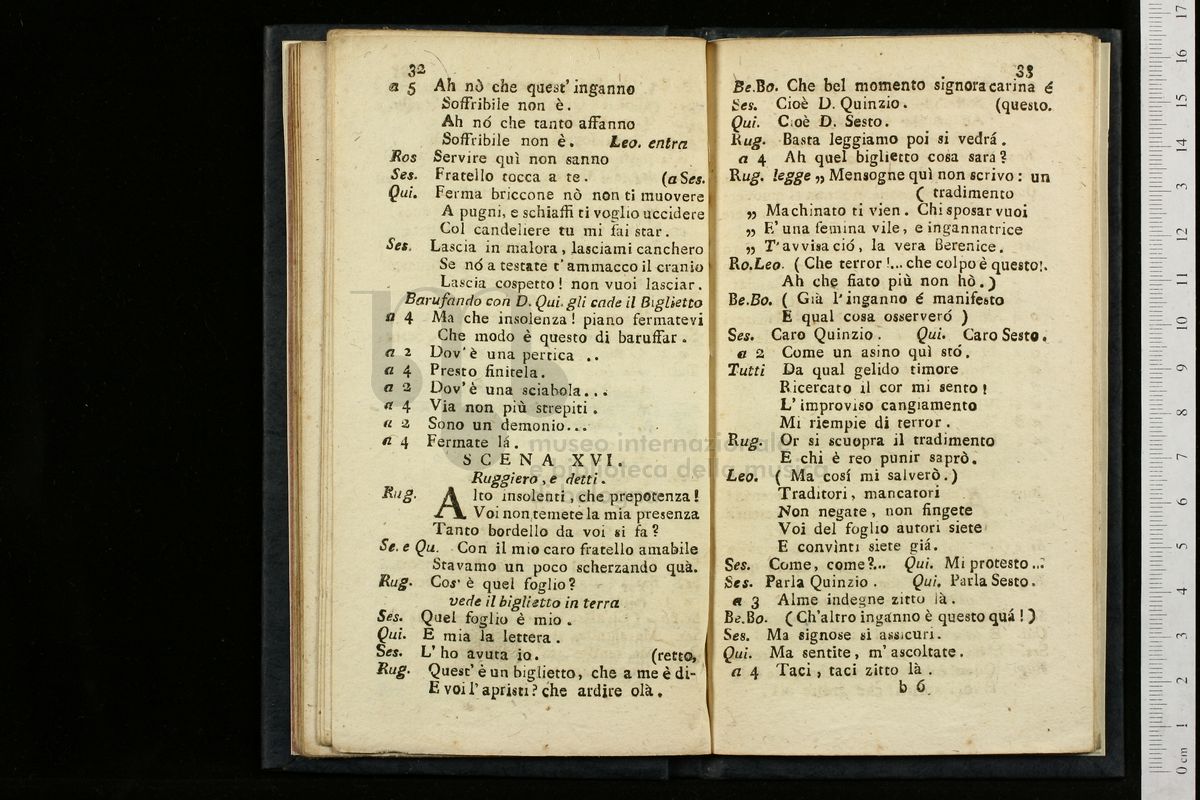 32
a 5 Ah nò che quest' inganno
Soffribile non è.
Ah nó che tanto affanno
Soffribile non è. Leo. entra
Ros Servire quì non sanno
Ses. Fratello tocca a te. (a Ses.
Qui. Ferma briccone nò non ti muovere
A pugni, e schiaffi ti voglio uccidere
Col candeliere tu mi fai star.
Ses. Lascia in malora, lasciami canchero
Se nó a testate t' ammacco il cranio
Lascia cospetto! non vuoi lasciar.
Barufando con D. Qui. gli cade il Biglietto
a 4 Ma che insolenza! piano fermatevi
Che modo è questo di baruffar.
a 2 Dov' è una pertica ..
a 4 Presto finitela.
a 2 Dov' è una sciabola...
a 4 Via non più strepiti.
a 2 Sono un demonio...
a 4 Fermate lá.
SCENA XVI.
Ruggiero, e detti.
Rug. Alto insolenti, che prepotenza!
Voi non temete la mia presenza
Tanto bordello da voi si fa?
Se. e Qu. Con il mio caro fratello amabile
Stavamo un poco scherzando quà.
Rug. Cos' è quel foglio?
vede il biglietto in terra
Ses. Quel foglio è mio.
Qui. E mia la lettera.
Ses. L' ho avuta io. (retto,
Rug. Quest' è un biglietto, che a me è di-
E voi l' apristi? che ardire olà.
33
Be.Bo. Che bel momento signora carina é
Ses. Cioè D. Quinzio. (questo.
Qui. Cioè D. Sesto.
Rug. Basta leggiamo poi si vedrá.
a 4 Ah quel biglietto cosa sara?
Rug. legge „ Mensogne quì non scrivo: un
( tradimento
„ Machinato ti vien. Chi sposar vuoi
„ E' una femina vile, e ingannatrice
„ T' avvisa ció, la vera Berenice.
Ro.Leo. ( Che terror!... che colpo è questo!.
Ah che fiato più non hò.)
Be.Bo. ( Già l' inganno é manifesto
E qual cosa osserveró )
Ses. Caro Quinzio. Qui. Caro Sesto.
a 2 Come un asino quì stó.
Tutti Da qual gelido timore
Ricercato il cor mi sento!
L' improviso cangiamento
Mi riempie di terror.
Rug. Or si scuopra il tradimento
E chi è reo punir saprò.
Leo. ( Ma cosí mi salverò.)
Traditori, mancatori
Non negate, non fingete
Voi del foglio autori siete
E convinti siete giá.
Ses. Come, come?... Qui. Mi protesto...
Ses. Parla Quinzio. Qui. Parla Sesto.
a 3 Alme indegne zitto là.
Be.Bo. ( Ch'altro inganno è questo quá!)
Ses. Ma signose si assicuri.
Qui. Ma sentite, m' ascoltate.
a 4 Taci, taci zitto là.
b 6
museo internazionale
e biblioteca della musica
0 cm 1 2 3 4 5 6 7 8 9 10 11 12 13 14 15 16 17